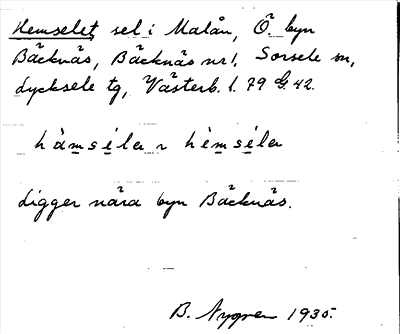 Hemselet sel i Malån, Ö. byn
Bäcknäs, Bäcknäs nr 1, Sorsele sn,
Lycksele tg, Västerb. l. 79 G. 42.
hä̀mséla r hèmséla
Ligger nära byn Bäcknäs.
B. Nygren 1935.